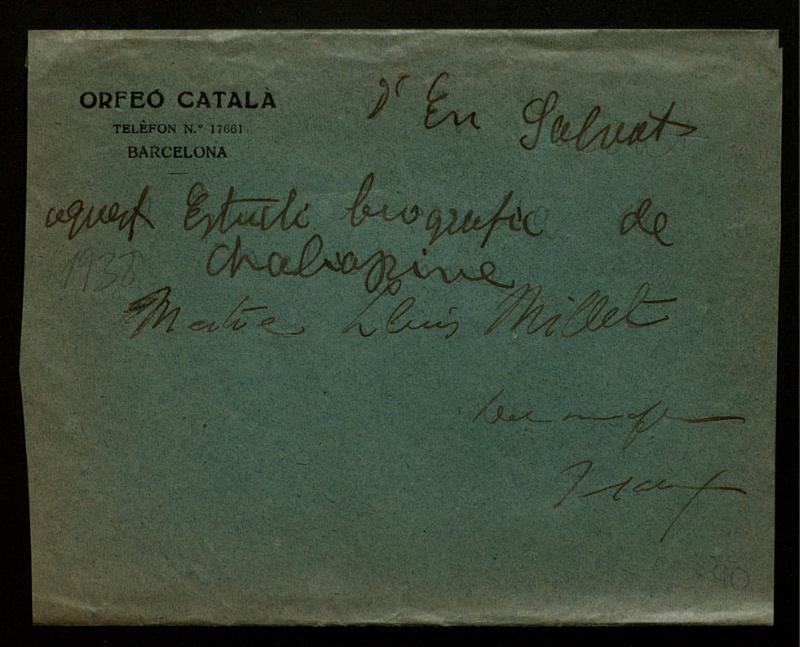 ORFEÓ CATALÀ
TELÈFON N.º 17661
BARCELONA
d'En Salvat
aquest Estudi biografic de
Chaliapine
1938
Mestre Lluis Millet